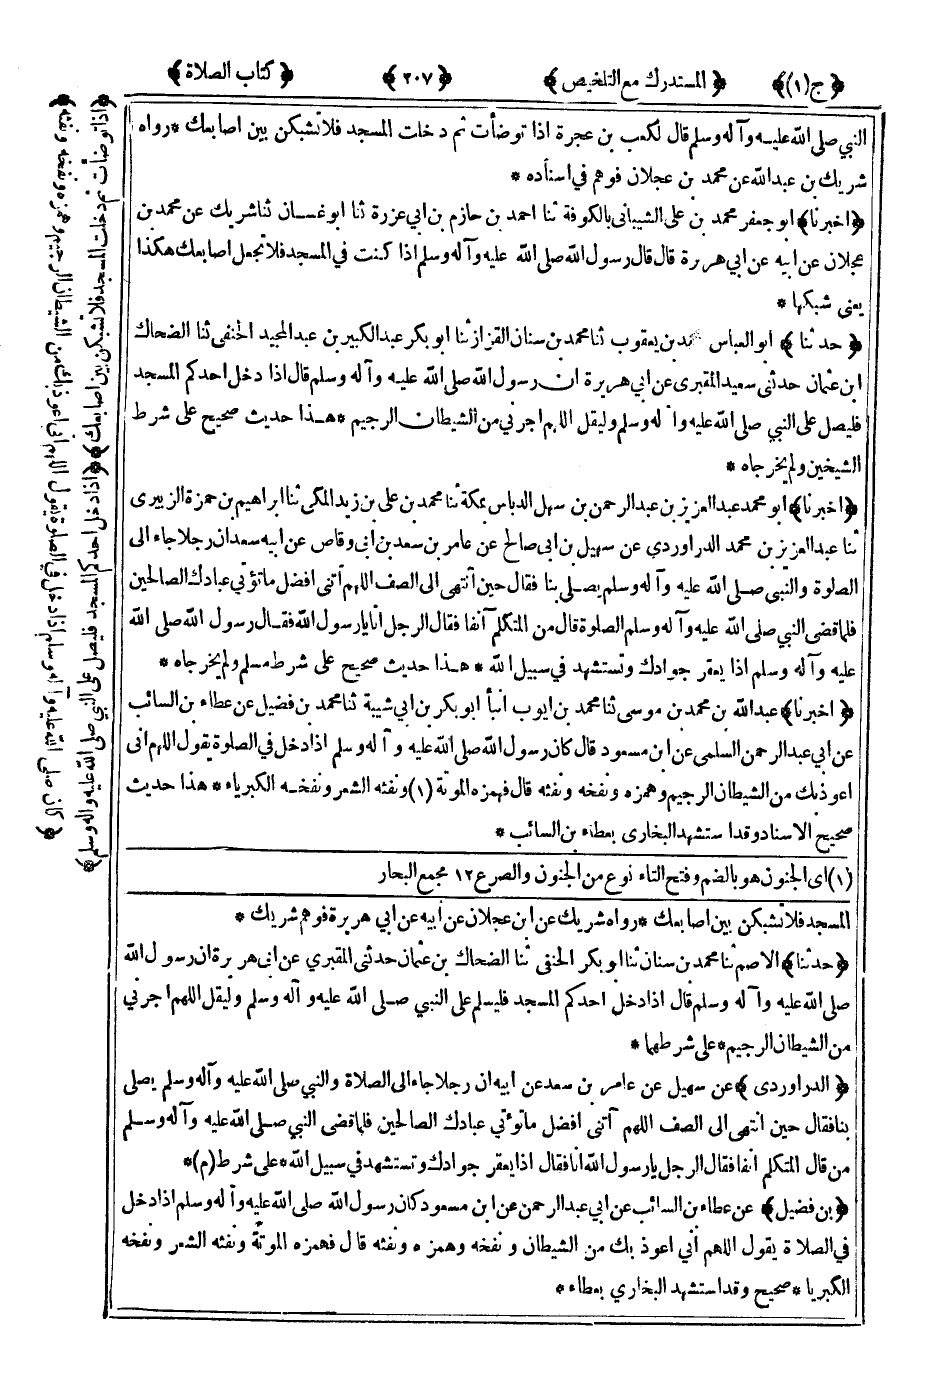 ﴿ج(١)﴾ ﴿المستدرك مع التلخيص﴾ ﴿٢٠٧﴾ ﴿كتاب الصلاة﴾
النبي صلى الله عليه وآله وسلم قال لكعب بن عجرة اذا توضأت ثم دخلت المسجد فلا تشبكن بين اصابعك * رواه
شريك بن عبد الله عن محمد بن عجلان فوهم في اسناده *
﴿اخبرنا﴾ ابو جعفر محمد بن على الشيبانى بالكوفة ثنا احمد بن حازم بن ابي عزرة ثنا ابو غسان ثنا شريك عن محمد بن
عجلان عن ابيه عن ابي هريرة قال قال رسول الله صلى الله عليه وآله وسلم اذا كنت في المسجد فلا تجعل اصابعك هكذا
يعنى شبكها *
﴿حدثنا﴾ ابو العباس محمد بن يعقوب ثنا محمد بن سنان القزاز ثنا ابو بكر عبد الكبير بن عبد المجيد الحنفى ثنا الضحاك
ابن عثمان حدثنى سعيد المقبرى عن ابي هريرة ان رسول الله صلى الله عليه وآله وسلم قال اذا دخل احدكم المسجد
فليصل على النبي صلى الله عليه وآله وسلم وليقل اللهم اجرني من الشيطان الرجيم * هذا حديث صحيح على شرط
الشيخين ولم يخرجاه *
﴿اخبرنا﴾ ابو محمد عبد العزيز بن عبد الرحمن بن سهل الدباس بمكة ثنا محمد بن على بن زيد المكى ثنا ابراهيم بن حمزة الزبيرى
ثنا عبد العزيز بن محمد الدراوردي عن سهيل بن ابى صالح عن عامر بن سعد بن ابى وقاص عن ابيه سعد ان رجلا جاء الى
الصلوة والنبى صلى الله عليه وآله وسلم يصلى بنا فقال حين انتهى الى الصف اللهم آتنى افضل ما تؤتي عبادك الصالحين
فلما قضى النبي صلى الله عليه وآله وسلم الصلوة قال من المتكلم آنفا فقال الرجل انا يا رسول الله فقال رسول الله صلى الله
عليه وآله وسلم اذا يعقر جوادك وتستشهد في سبيل الله * هذا حديث صحيح على شرط مسلم ولم يخرجاه *
﴿اخبرنا﴾ عبد الله بن محمد بن موسى ثنا محمد بن ايوب انبأ ابو بكر بن ابي شيبة ثنا محمد بن فضيل عن عطاء بن السائب
عن ابي عبد الرحمن السلمى عن ابن مسعود قال كان رسول الله صلى الله عليه وآله وسلم اذا دخل في الصلوة يقول اللهم انى
اعوذ بك من الشيطان الرجيم وهمزه ونفخه ونفثه قال فهمزه الموتة (١) ونفثه الشعر ونفخه الكبرياء * هذا حديث
صحيح الاسناد وقد استشهد البخارى بعطاء بن السائب *
(١) اى الجنون هو بالضم وفتح التاء نوع من الجنون والصرع ١٢ مجمع البحار
المسجد فلا تشبكن بين اصابعك * رواه شريك عن ابن عجلان عن أبيه عن ابي هريرة فوهم شريك *
﴿حدثنا﴾ الاصم ثنا محمد بن سنان ثنا ابو بكر الحنفى ثنا الضحاك بن عثمان حدثني المقبري عن ابى هريرة ان رسول الله
صلى الله عليه وآله وسلم قال اذا دخل احدكم المسجد فليسلم على النبي صلى الله عليه وآله وسلم وليقل اللهم اجرني
من الشيطان الرجيم * على شرطهما *
﴿الدراوردى﴾ عن سهيل عن عامر بن سعد عن ابيه ان رجلا جاء الى الصلاة والنبي صلى الله عليه وآله وسلم يصلى
بنا فقال حين انتهى الى الصف اللهم آتنى افضل ما تؤتي عبادك الصالحين فلما قضى النبي صلى الله عليه وآله وسلم
من قال المتكلم آنفا فقال الرجل يا رسول الله انا فقال اذا يعقر جوادك وتستشهد في سبيل الله * على شرط (م) *
﴿بن فضيل﴾ عن عطاء بن السائب عن ابي عبد الرحمن عن ابن مسعود كان رسول الله صلى الله عليه وآله وسلم اذا دخل
في الصلاة يقول اللهم أني اعوذ بك من الشيطان ونفخه وهمزه ونفثه قال فهمزه الموتة ونفثه الشعر ونفخه
الكبريا * صحيح وقد استشهد البخاري بعطاء *
﴿اذا توضأت ثم دخلت المسجد فلا تشبكن بين اصابعك﴾ ﴿اذا دخل احدكم المسجد فليصل على النبي صلى الله عليه وآله وسلم﴾
﴿كان صلى الله عليه وآله وسلم اذا دخل في الصلوة يقول اللهم انى اعوذ بك من الشيطان الرجيم وهمزه ونفخه ونفثه﴾